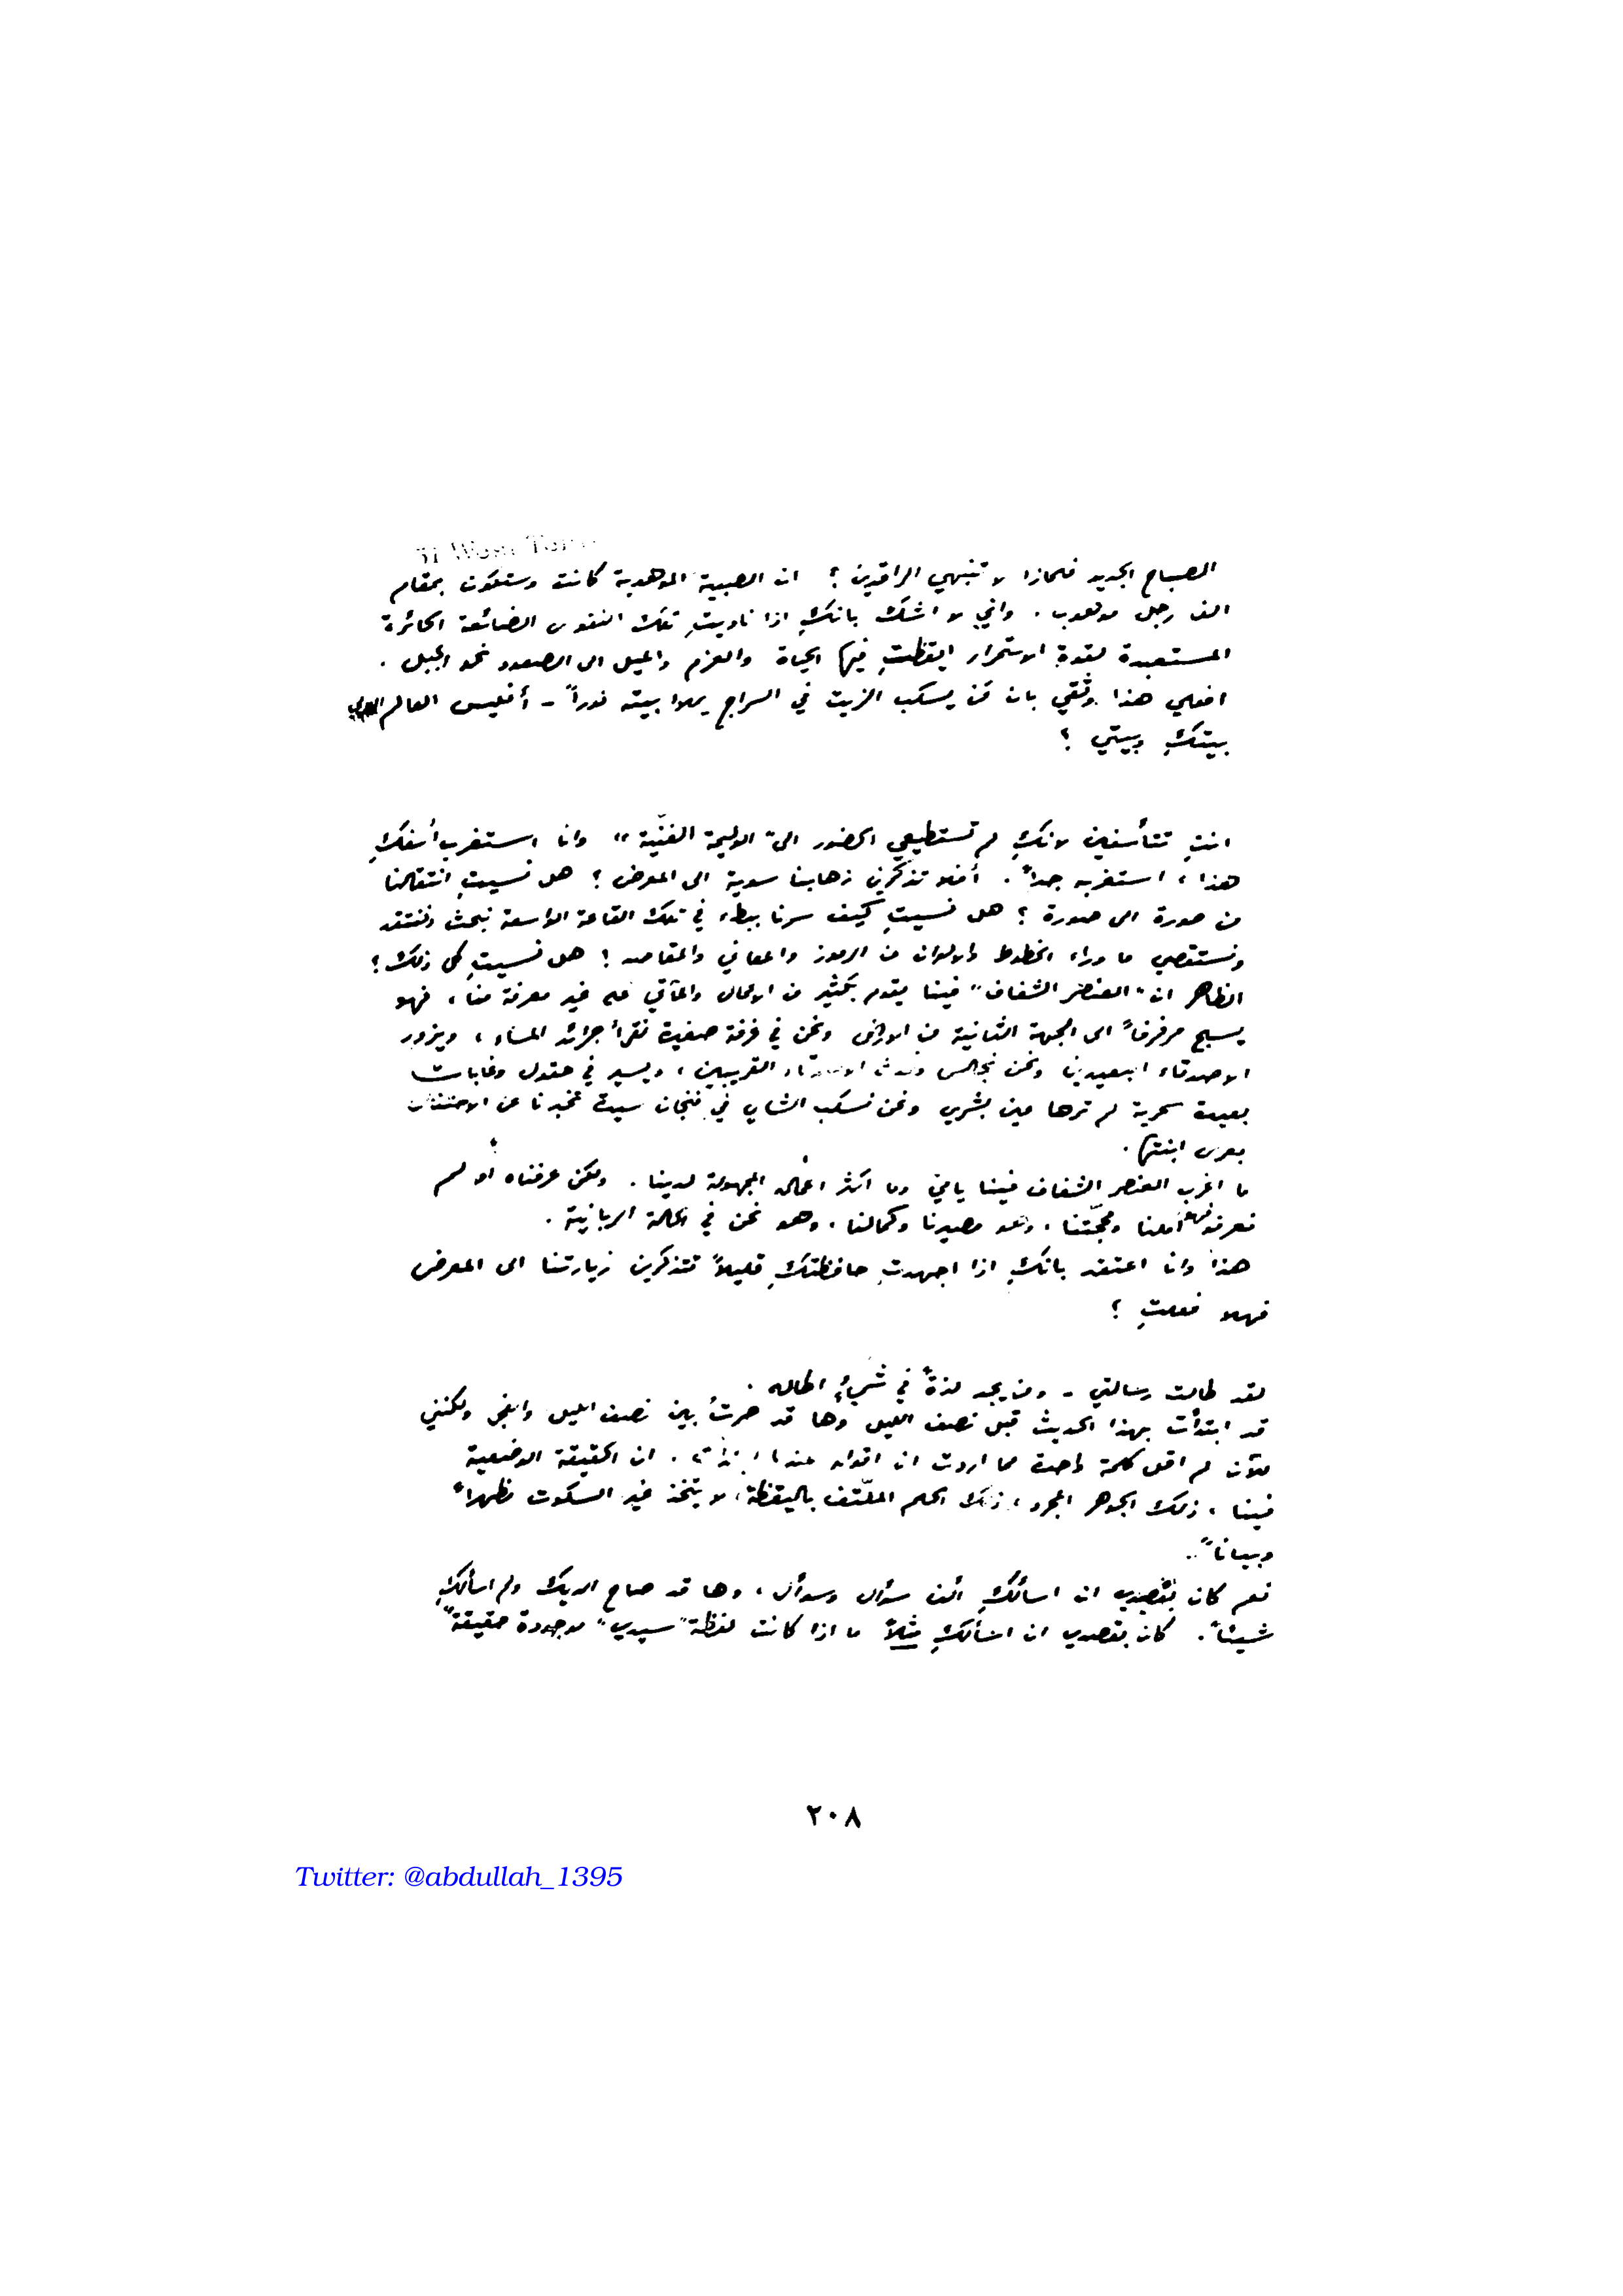 51 West Tenth
الصباح الجديد فلماذا لا تنبهي الراقدين ؟ ان الصبية الموهوبة كانت وستكون بمقام
الف رجل موهوب . واني لا اشك بانكِ اذا ناديتِ تلك النفوس الضائعة الحائرة
المستعبدة لقوة الاستمرار ايقظتِ فيها الحياة والعزم والميل الى الصعود نحو الجبل .
افعلي هذا وثقي بان مَن يسكب الزيت في السراج يملأ بيته نوراً - أفليس العالم العربي
بيتكِ وبيتي ؟
انتِ تتأسفين لانكِ لم تستطيعي الحضور الى " الوليمة الفنّية " وانا استغرب أسفكِ
هذا ، استغربه جداً . أفلا تذكرين ذهابنا سوية الى المعرض ؟ هل نسيتِ انتقالنا
من صورة الى صورة ؟ هل نسيتِ كيف سرنا ببطء في تلك القاعة الواسعة نبحث وننتقد
ونستقصي ما وراء الخطوط والالوان من الرموز والمعاني والمقاصد ؟ هل نسيتِ كل ذلك ؟
الظاهر ان " العنصر الشفاف " فينا يقوم بكثير من الاعمال والمآتي على غير معرفة منا ، فهو
يسبح مرفرفاً الى الجهة الثانية من الارض ونحن في غرفة صغيرة نقرأ جرائد المساء ، ويزور
الاصدقاء البعيدين ونحن نجالس ونحدث الاصدقاء القريبين ، ويسير في حقول وغابات
بعيدة سحرية لم ترها عين بشري ونحن نسكب الشاي في فنجان سيدة تخبرنا عن الاحتفال
بعرس ابنتها .
ما اغرب العنصر الشفاف فينا يا مي وما اكثر اعماله المجهولة لدينا . ولكن عرفناه او لم
نعرفه فهو املنا ومحجّتنا ، وهو مصيرنا وكمالنا ، وهو نحن في الحالة الربانية .
هذا وانا اعتقد بانكِ اذا اجهدتِ حافظتكِ قليلاً تتذكرين زيارتنا الى المعرض
فهلا فعلتِ ؟
لقد طالت رسالتي - ومن يجد لذةً في شيءٍ اطاله .
قد ابتدأت بهذا الحديث قبل نصف الليل وها قد صرتُ بين نصف الليل والفجر ولكنني
للآن لم اقل كلمة واحدة مما اردت ان اقوله عندما ابتدأت . ان الحقيقة الوضعية
فينا ، ذلك الجوهر المجرد ، ذلك الحلم الملتف باليقظة ، لا يتخذ غير السكوت مظهراً
وبياناً ..
نعم كان بقصدي ان اسألكِ الف سؤال وسؤال ، وها قد صاح الديك ولم اسألكِ
شيئاً . كان بقصدي ان اسألكِ مثلاً ما اذا كانت لفظة " سيدي " موجودة حقيقةً
٢٠٨
Twitter: @abdullah_1395